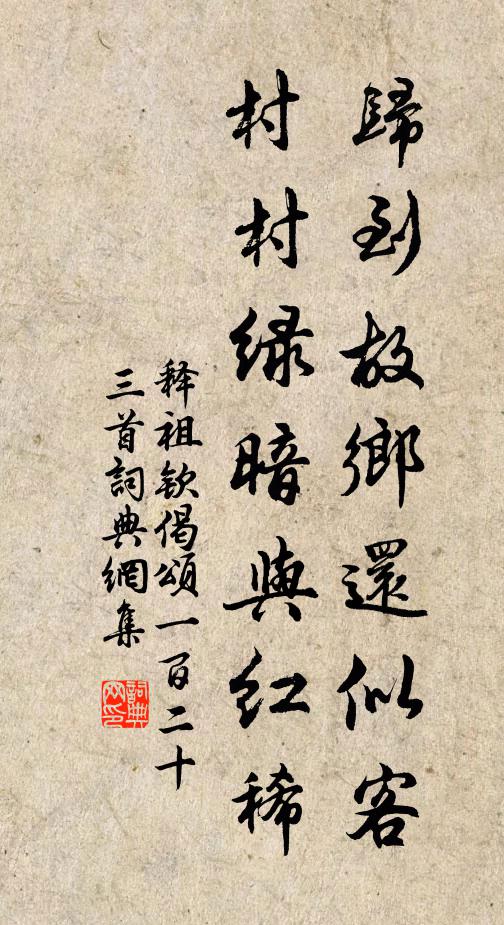 歸到故鄉還似客
村村綠暗與紅稀
释祖钦偈頌一百二十
三首詞典網集
詞典网印